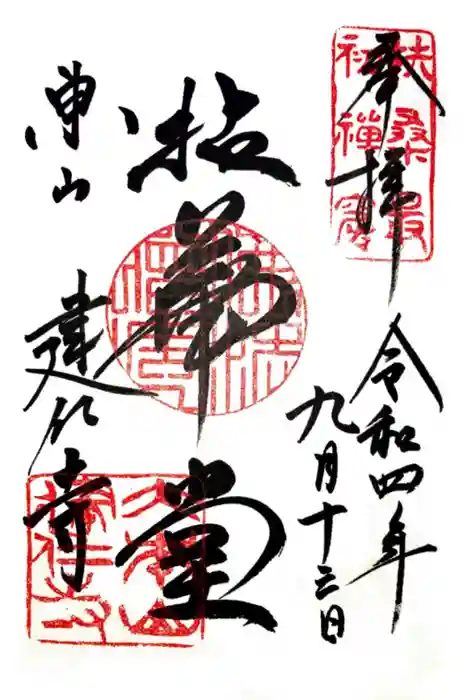 奉拝
扶桑最
初禪窟
令和四年
九月十三日
拈華堂
東山
建仁寺